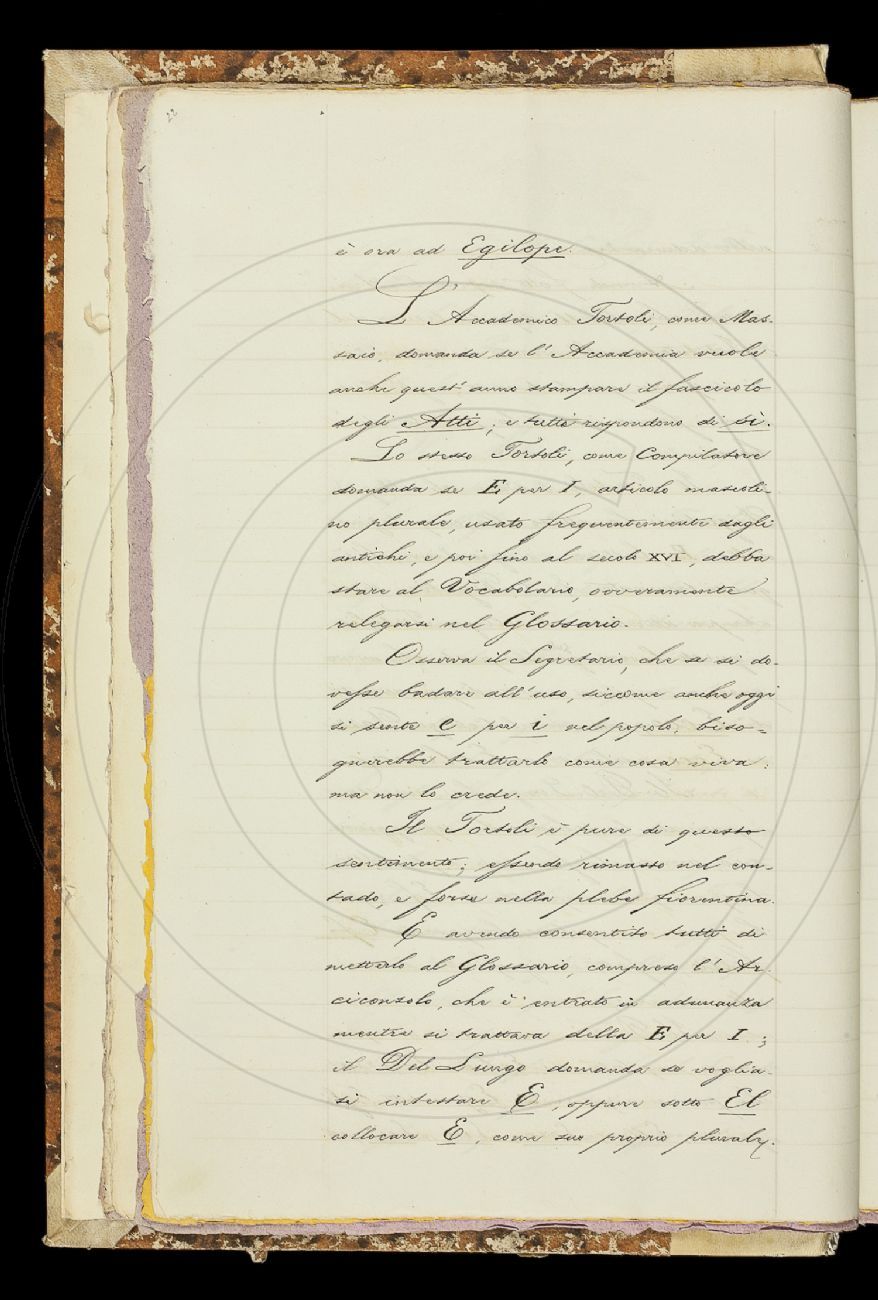 22
è ora ad Egilope.
L'Accademico Tortoli, come Mas-
saio, domanda se l'Accademia vuole
anche quest'anno stampare il fascicolo
degli Atti; e tutti rispondono di sì.
Lo stesso Tortoli, come Compilatore
domanda se E per I, articolo mascoli-
no plurale, usato frequentemente dagli
antichi, e poi fino al secolo XVI, debba
stare al Vocabolario, ovveramente
relegarsi nel Glossario.
Osserva il Segretario, che se si do-
vesse badare all'uso, siccome anche oggi
si sente e per i nel popolo, biso-
gnerebbe trattarlo come cosa viva:
ma non lo crede.
Il Tortoli è pure di questo
sentimento; essendo rimasto nel con-
tado, e forse nella plebe fiorentina.
E avendo consentito tutti di
metterlo al Glossario, compreso l'Ar-
ciconsolo, che è entrato in adunanza
mentre si trattava della E per I;
il Del Lungo domanda se voglia-
si intestare E, oppure sotto El
collocare E, come suo proprio plurale.